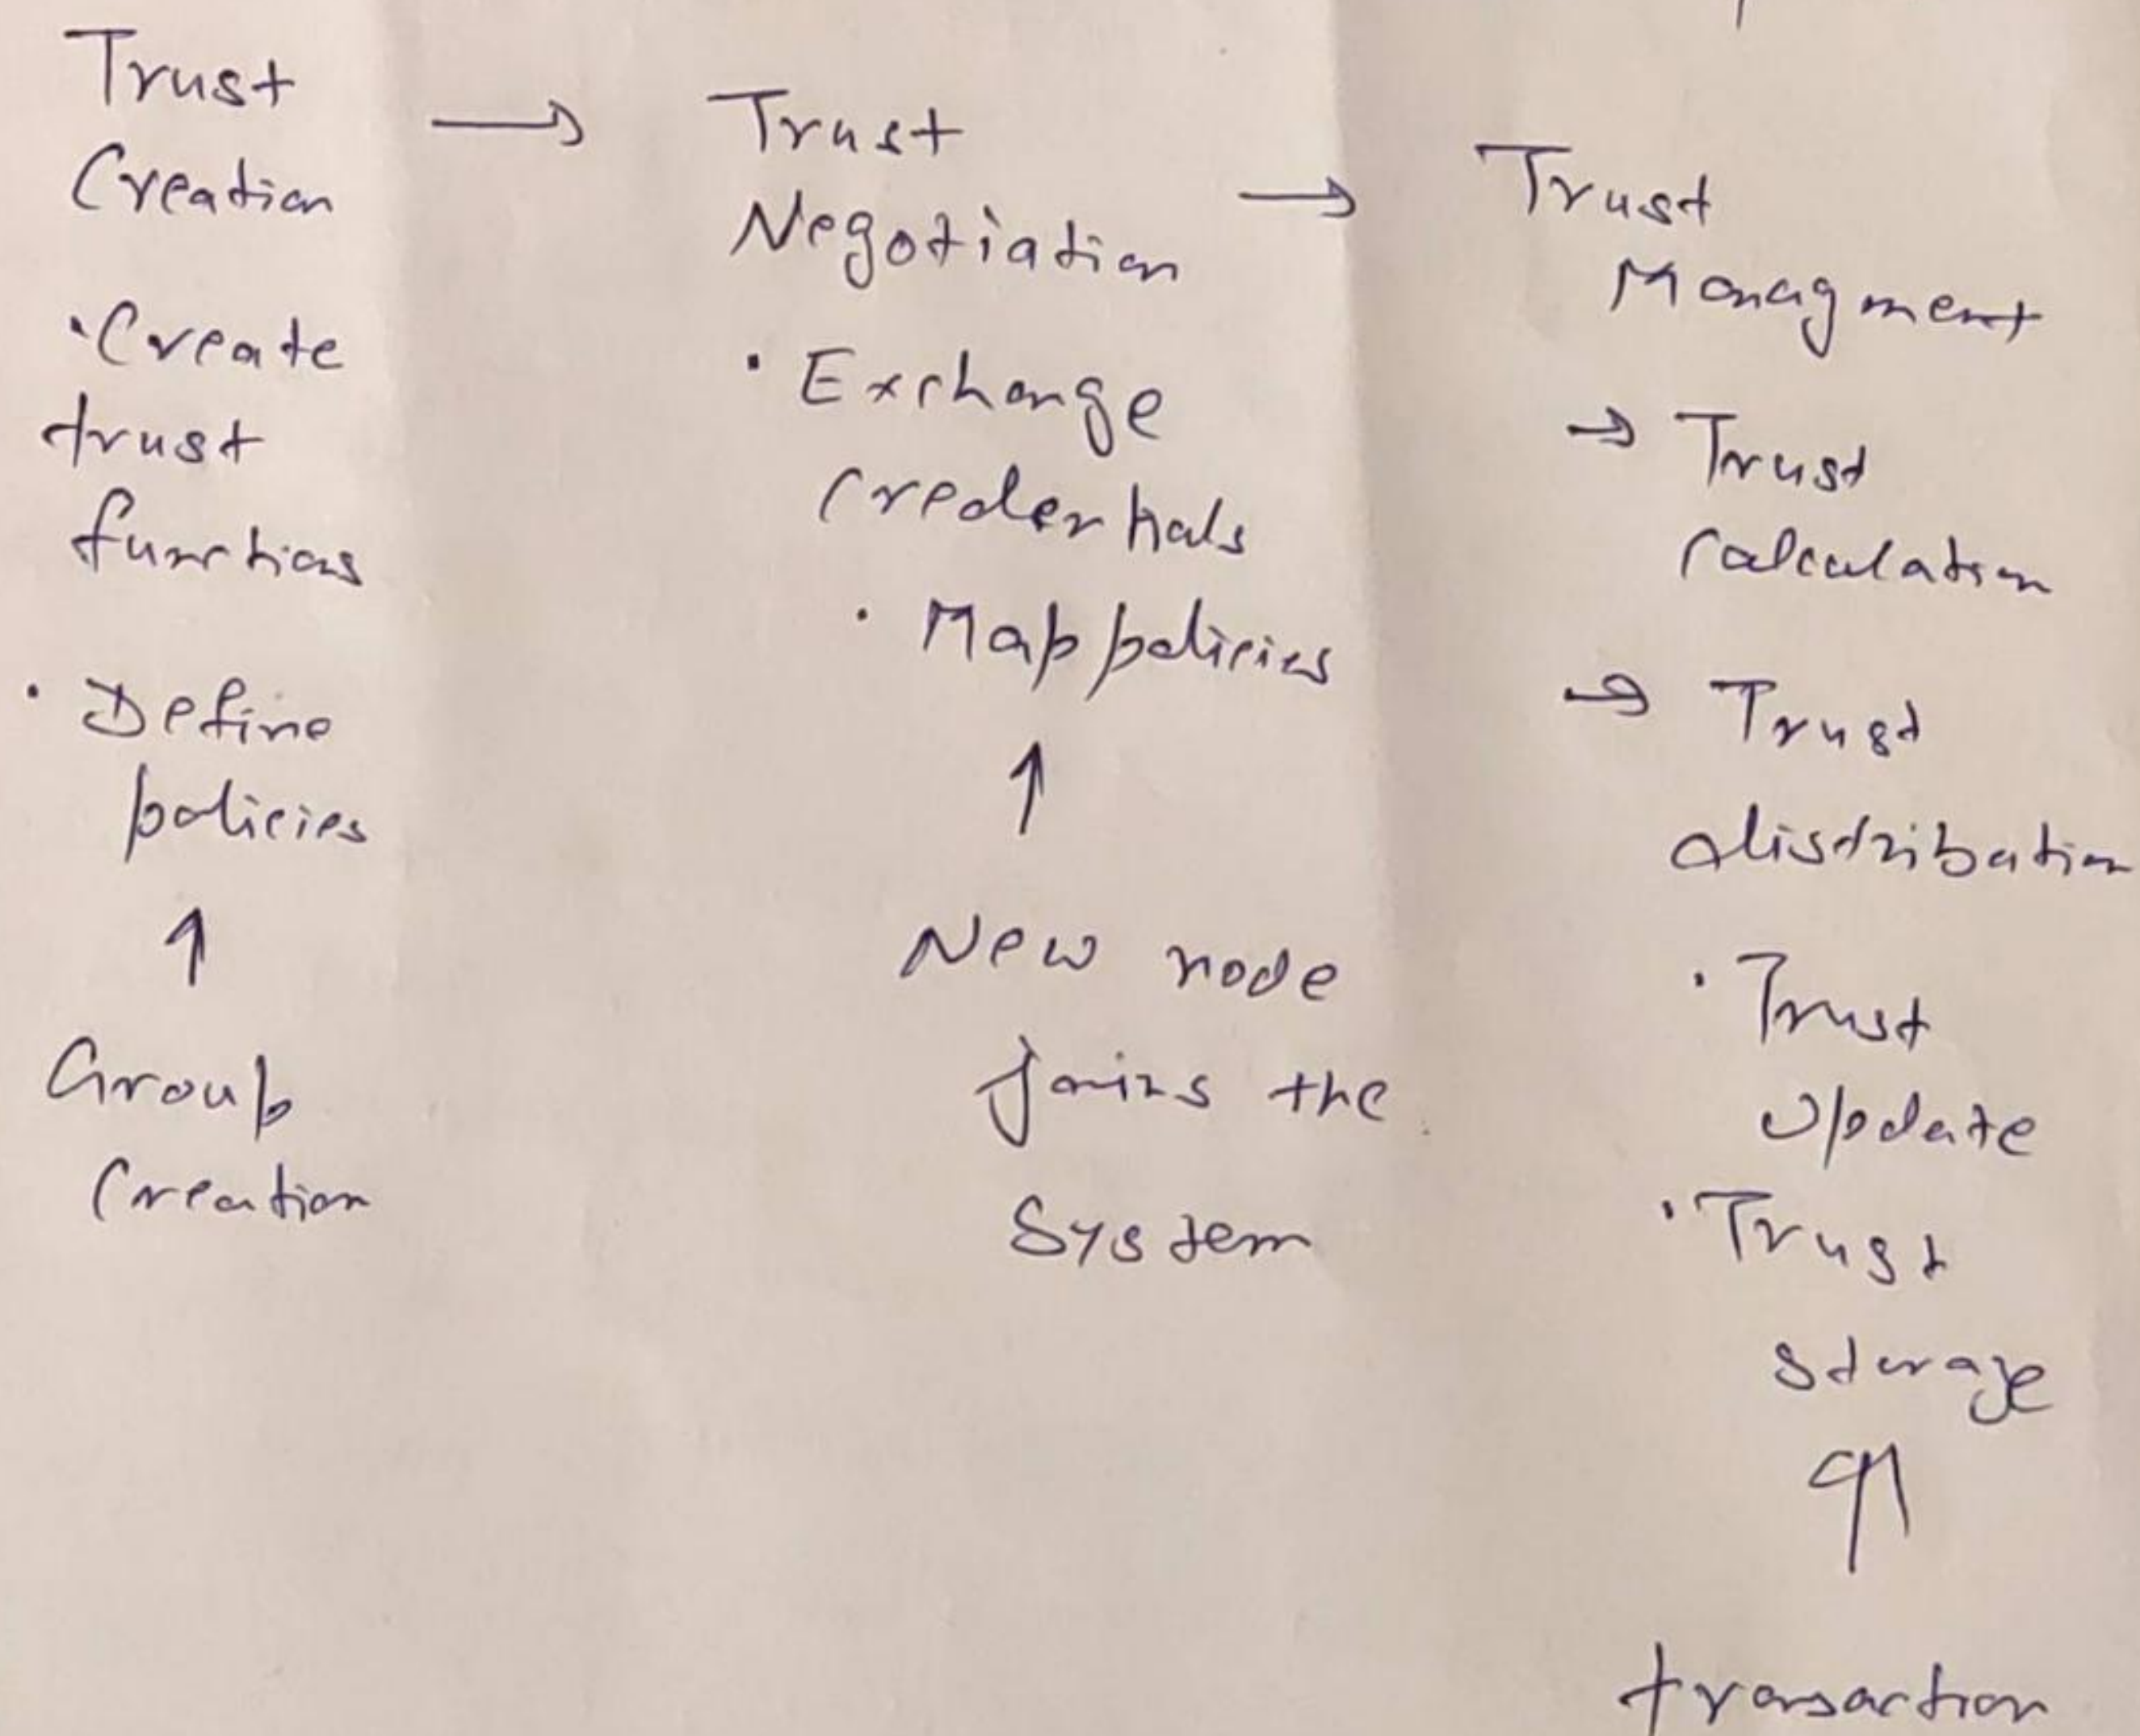 Trust
Creation
· Create
trust
functions
· Define
policies
↑
Group
Creation
→
Trust
Negotiation
· Exchange
credentials
· Map policies
↑
New node
joins the
System
→
Trust
Managment
→ Trust
Calculation
→ Trust
distribution
· Trust
Update
· Trust
storage
↑
transaction